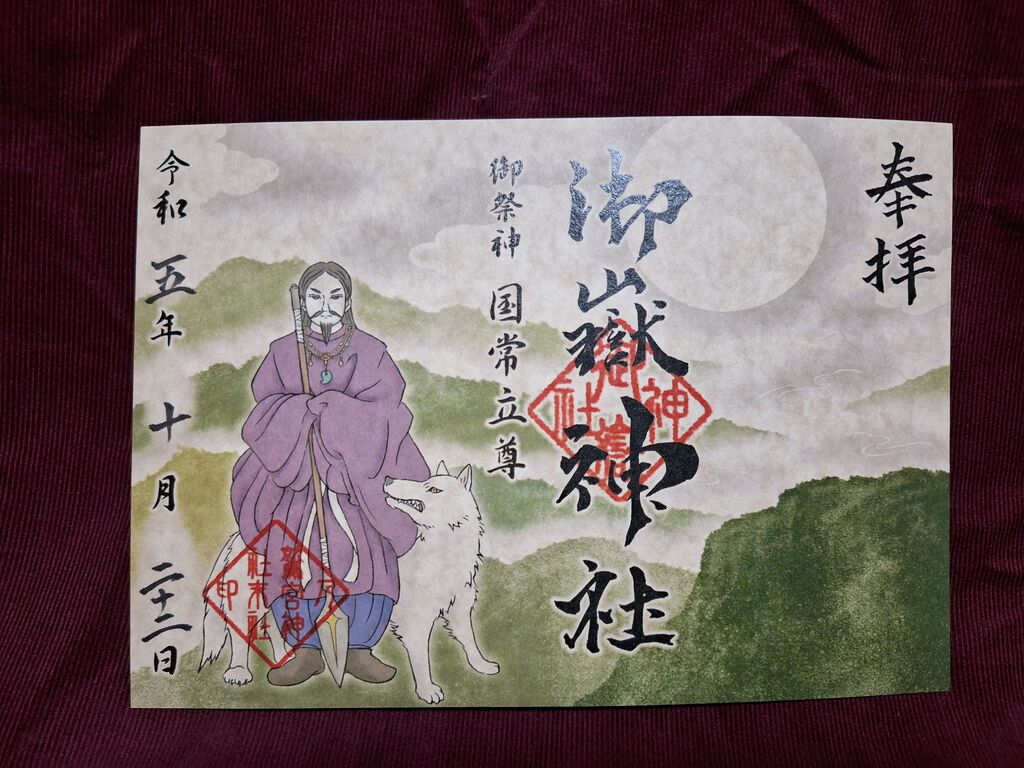 奉拝
御嶽神社
御嶽神社
御祭神 国常立尊
鷲宮神
社末社
之印
令和五年十月二十二日